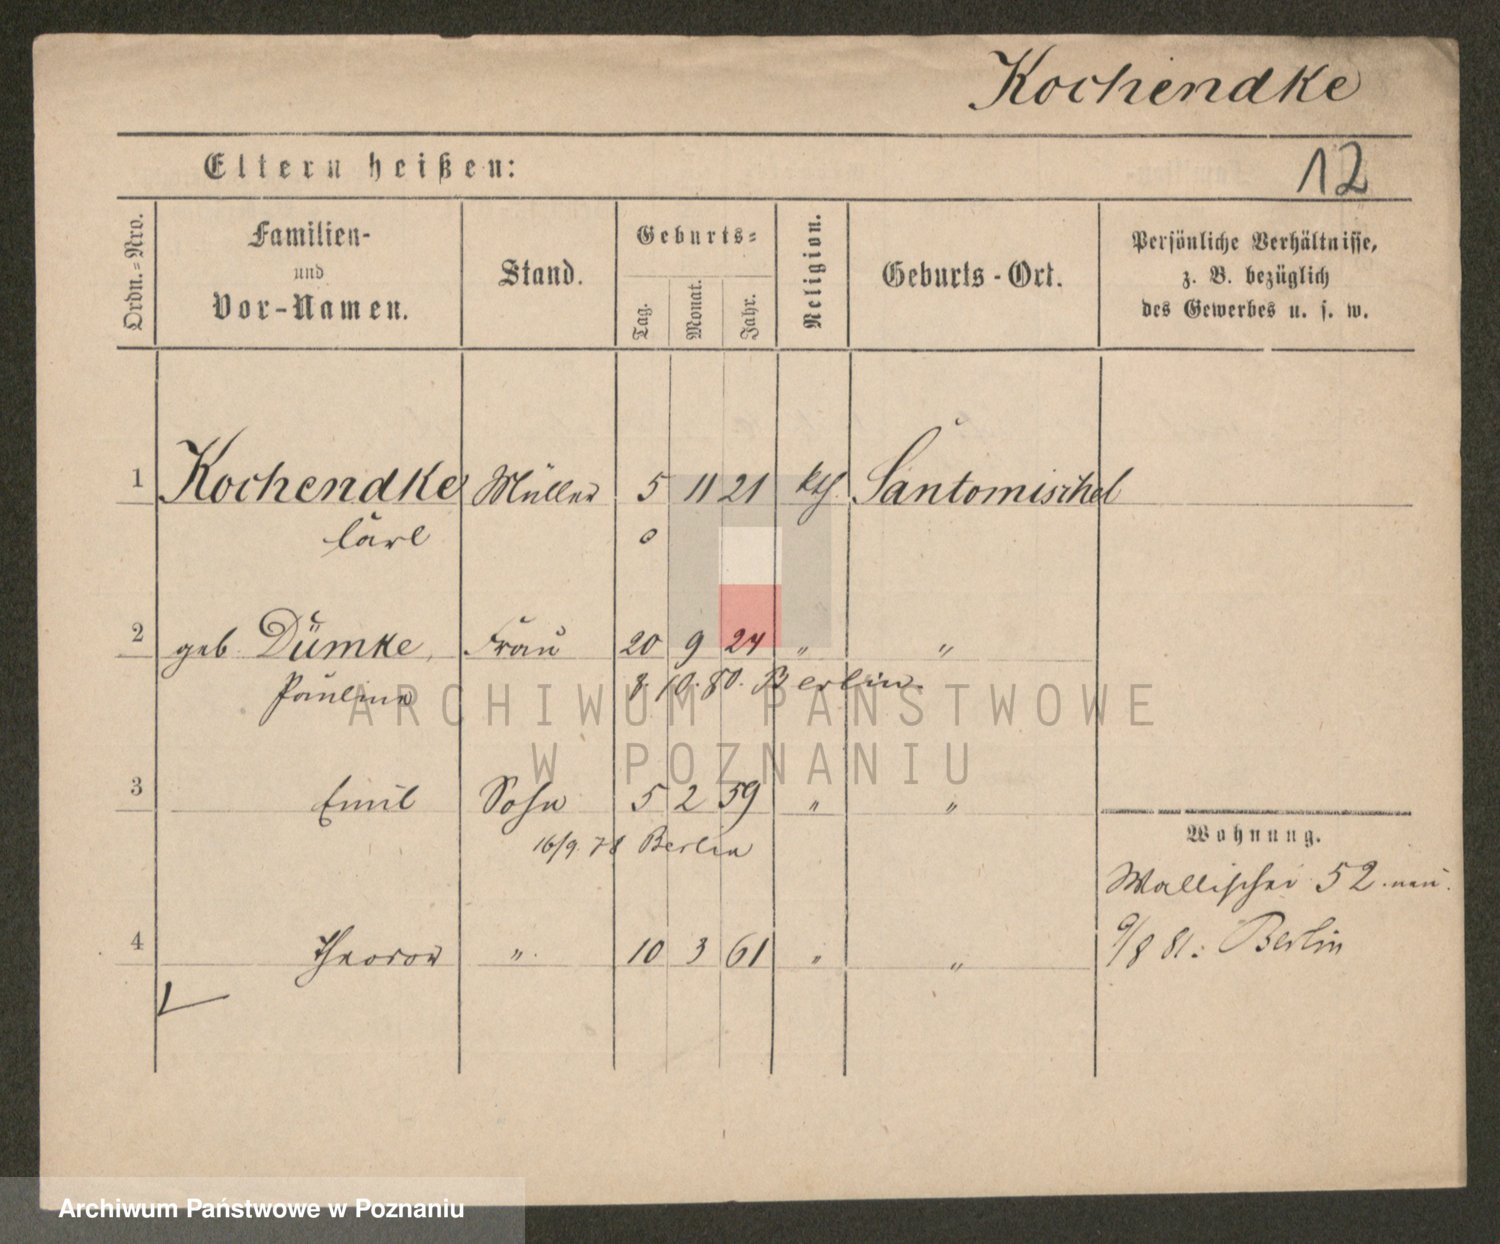 Kochendke
12
Eltern heißen:
Ordn.=Nro.
Familien-
und
Vor-Namen.
Stand.
Geburts=
Tag.
Monat.
Jahr.
Religion.
Geburts-Ort.
Persönliche Verhältnisse,
z. B. bezüglich
des Gewerbes u. s. w.
1 Kochendke Müller 5 11 21 kth. Santomischel
Carl
2 geb Dümke, Frau 20 9 24 " "
Pauline 8.10.80. Berlin.
ARCHIWUM PAŃSTWOWE
W POZNANIU
3 Emil Sohn 5 2 59 " "
16/9. 78 Berlin
Wohnung.
Wallischei 52 neu.
4 Theodor " 10 3 61 " "
9/8 81. Berlin
Archiwum Państwowe w Poznaniu